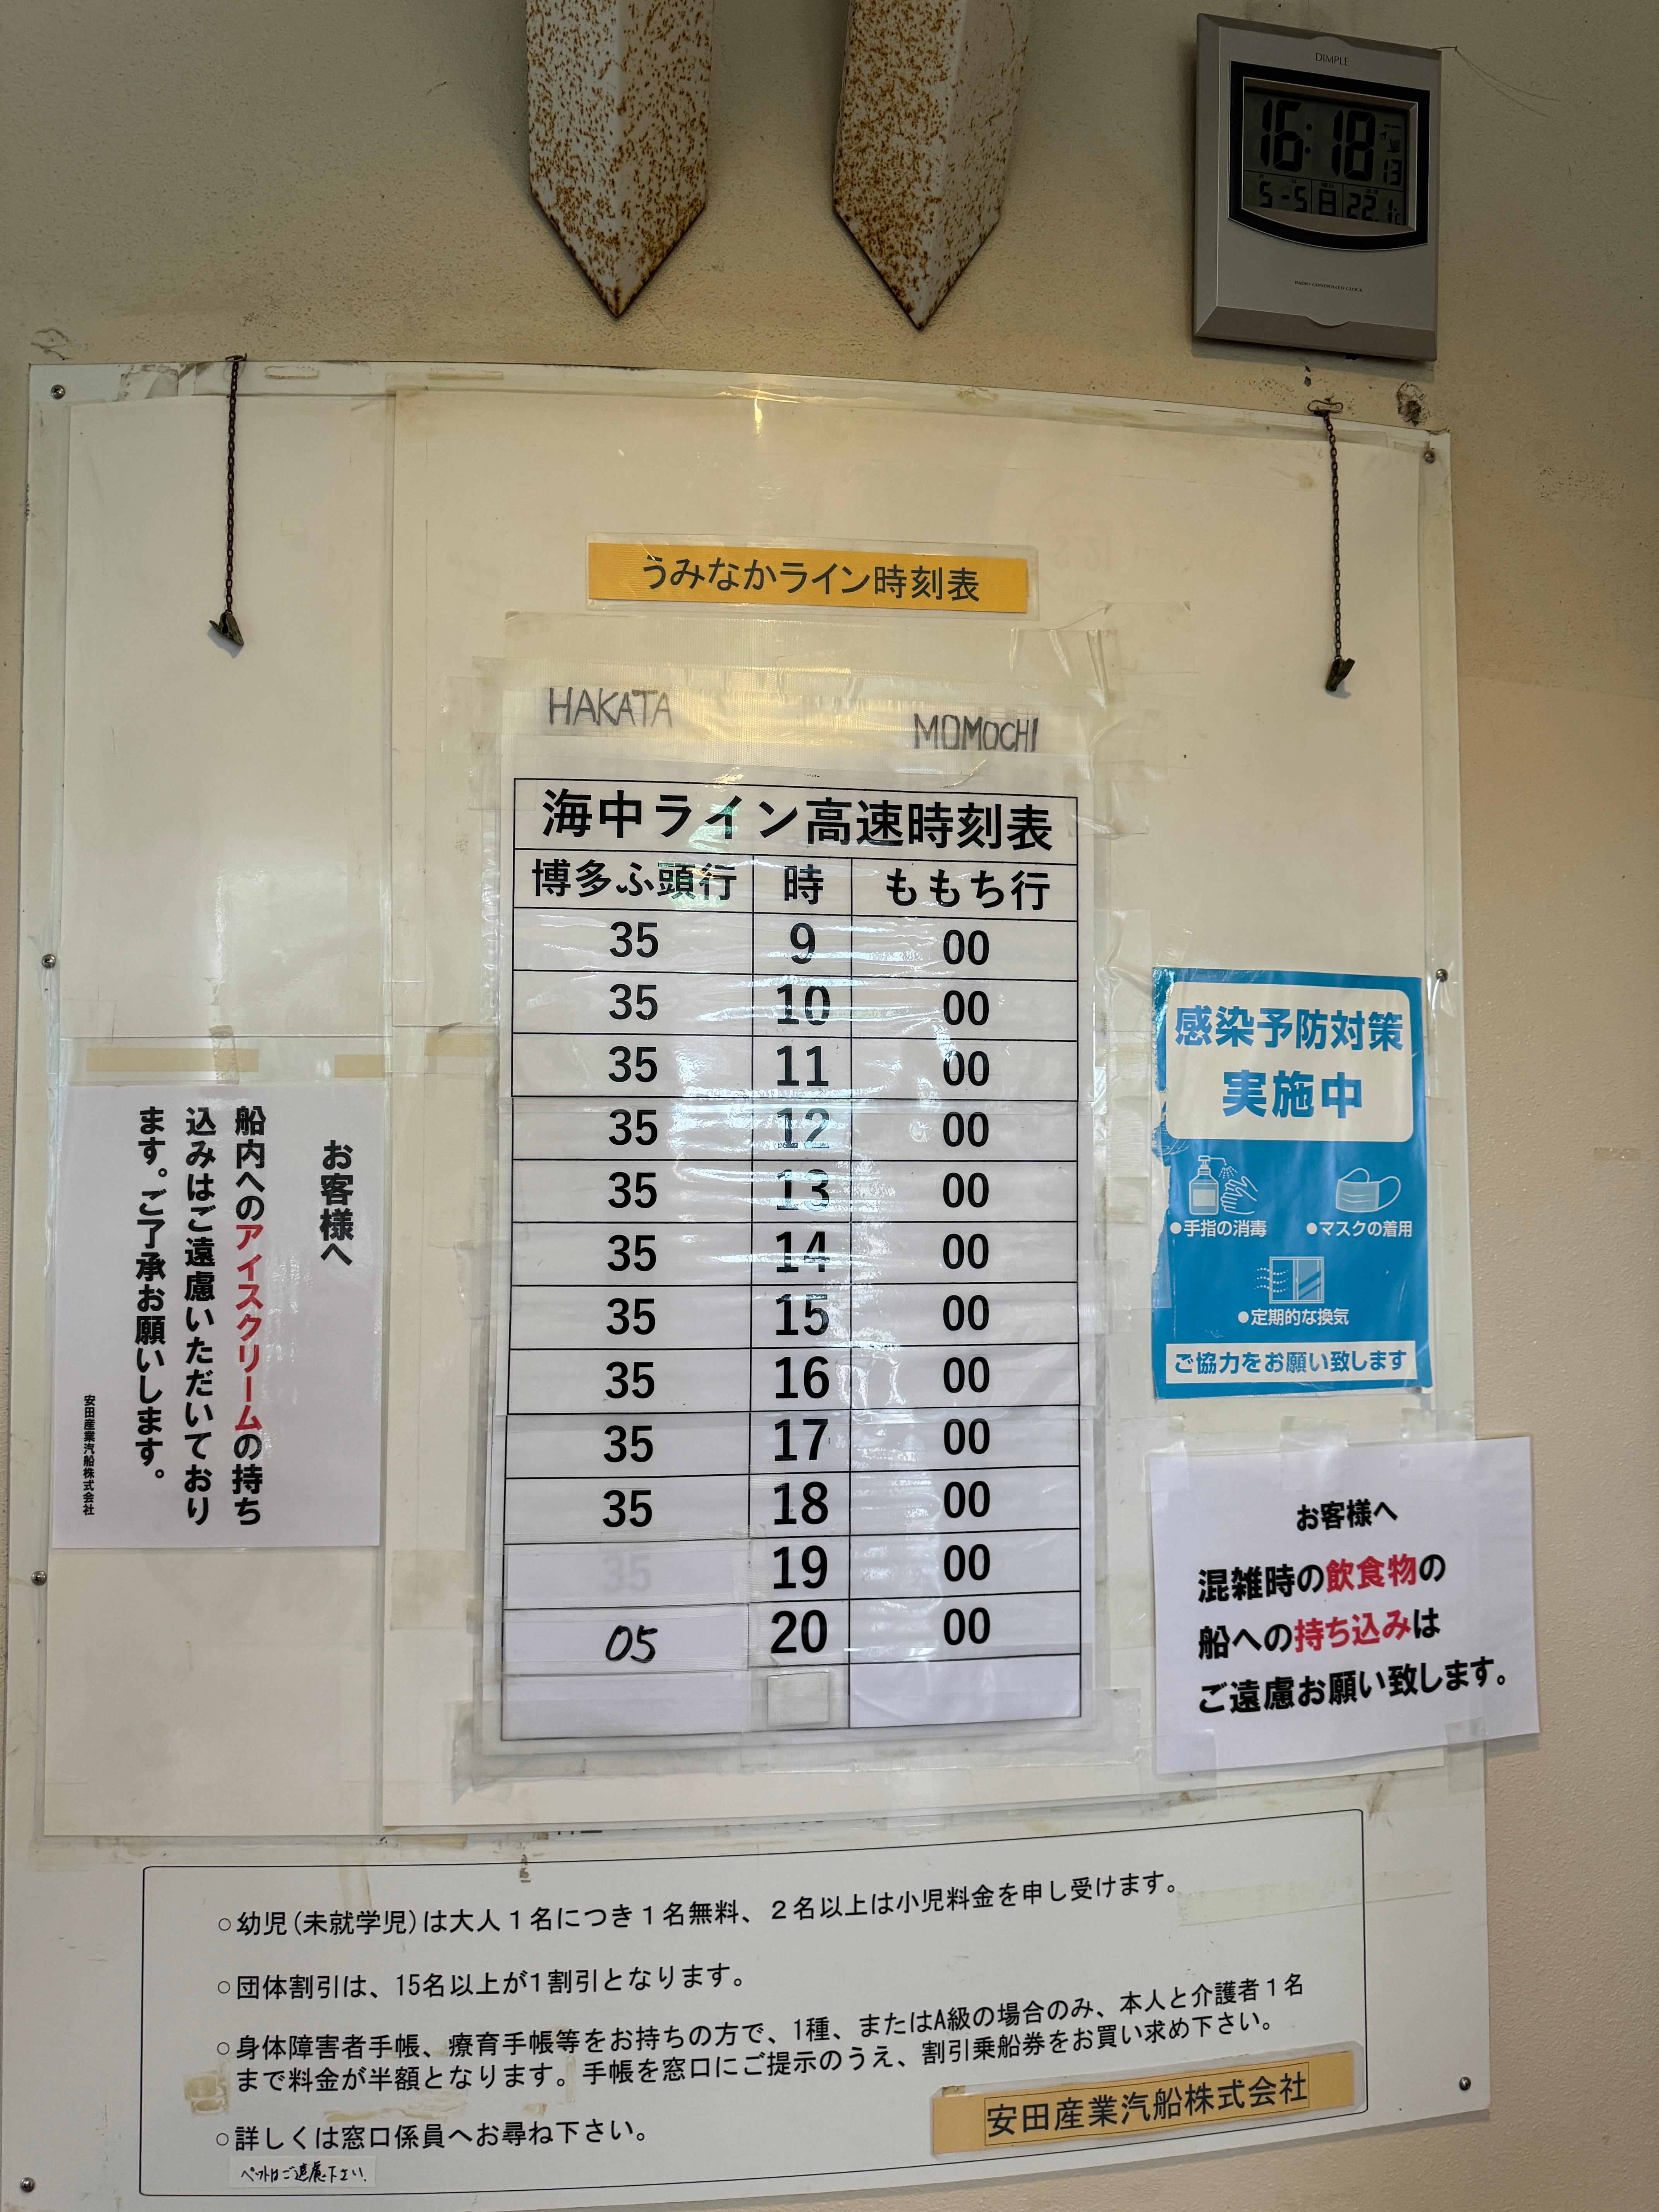 DIMPLE
16:18
13
5-5 日 22.1℃
RADIO CONTROLLED CLOCK
うみなかライン時刻表
HAKATA MOMOCHI
海中ライン高速時刻表
博多ふ頭行 時 ももち行
35 9 00
35 10 00
35 11 00
35 12 00
35 13 00
35 14 00
35 15 00
35 16 00
35 17 00
35 18 00
35 19 00
05 20 00
お客様へ
船内へのアイスクリームの持ち
込みはご遠慮いただいており
ます。ご了承お願いします。
安田産業汽船株式会社
感染予防対策
実施中
●手指の消毒 ●マスクの着用
●定期的な換気
ご協力をお願い致します
お客様へ
混雑時の飲食物の
船への持ち込みは
ご遠慮お願い致します。
○幼児(未就学児)は大人１名につき１名無料、２名以上は小児料金を申し受けます。
○団体割引は、15名以上が1割引となります。
○身体障害者手帳、療育手帳等をお持ちの方で、1種、またはA級の場合のみ、本人と介護者１名
まで料金が半額となります。手帳を窓口にご提示のうえ、割引乗船券をお買い求め下さい。
○詳しくは窓口係員へお尋ね下さい。
ペットはご遠慮下さい.
安田産業汽船株式会社